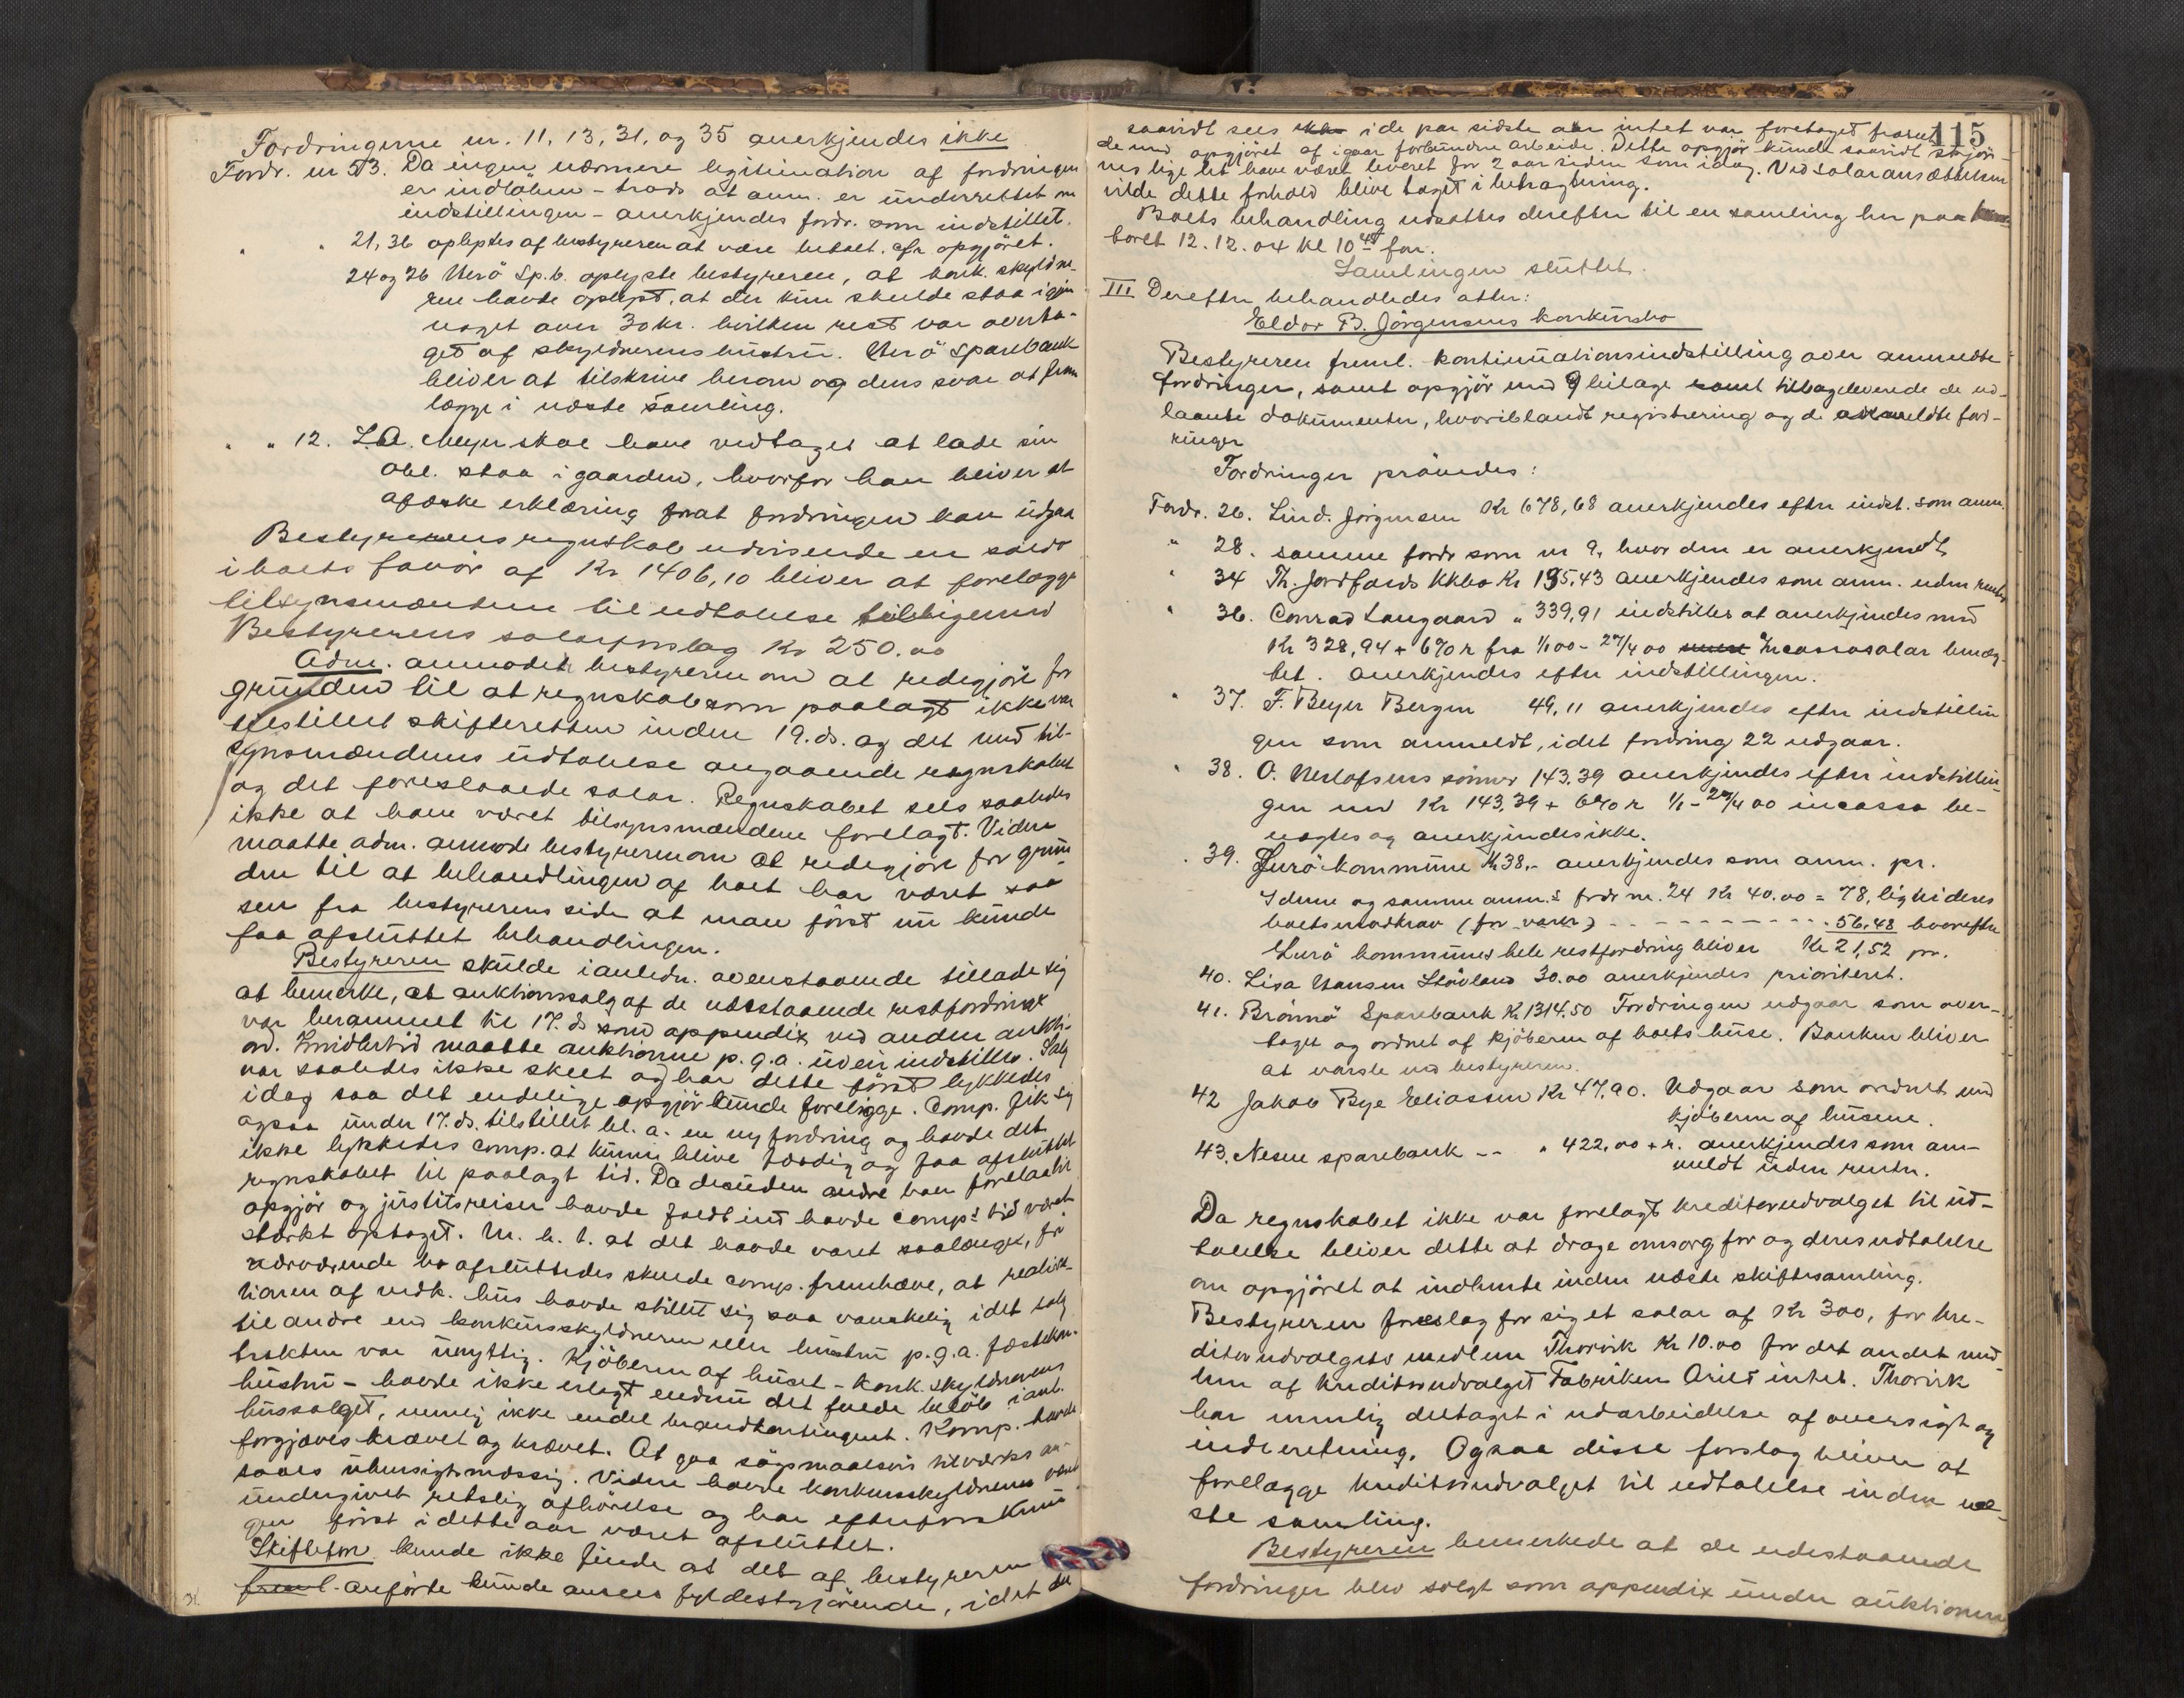 Fordringerne nr. 11, 13, 31, og 35 anerkjendes ikke
Fordr. nr 53. Da ingen nærmere legitimation af fordringen
er indløben - trods at anm. er underrettet om
indstillingen - anerkjendes fordr. som indstillet.
" " 21, 36 oplystes af bestyreren at være betalt. cfr opgjöret.
24 og 26 Herö Sp.b. oplyste bestyreren, at konk. skyldne-
ren havde oplyst, at der kun skulde staa igjen
noget over 30 kr. hvilken rest var overta-
get af skyldnerens hustru. Herö Sparebank
bliver at tilskrive herom og dens svar at frem
lægge i næste samling.
" " 12. L.A. Meyer skal have vedtaget at lade sin
obl. staa i gaarden, hvorfor han bliver at
afæske erklæring for at fordringen kan udgaa
Bestyrerens regnskab udvisende en saldo
i boets favör af Kr 1406,10 bliver at forelægge
tilsynsmændene til udtalelse tilligemed
Bestyrerens salærforslag Kr 250.00
Adm. anmodede bestyreren om at redegjöre for
grunden til at regnskabet som paalagt ikke var
tilstillet skifteretten inden 19. ds. og det med til-
synsmændenes udtalelse angaaende regnskabet
og det foreslaaede salær. Regnskabet sees saaledes
ikke at have været tilsynsmændene forelagt. Videre
maatte adm. anmode bestyreren om at redegjöre for grun
den til at behandlingen af boet har været saa
sen fra bestyrerens side at man först nu kunde
faa afsluttet behandlingen.
Bestyreren skulde i anledn. ovenstaaende tillade sig
at bemerke, at auktionssalg af de udestaaende restfordringer
var berammet til 17. ds som appendix ved anden aukti-
on. Imidlertid maatte auktionen p. g. a. uveir indstilles. Salg
var saaledes ikke skeet og har dette först lykkedes
idag saa det endelige opgjör kunde foreligge. Comp. fik sig
ogsaa under 17. ds. tilstillet bl. a. en ny fordring og havde det
ikke lykkedes comp. at kunne blive færdig og faa afsluttet
regnskabet til paalagt tid. Da desuden andre boer forelaa til
opgjör og justitsreiser havde faldt ind havde comp.s tid været
stærkt optaget. M. h. t. at det havde varet saalænge, för
nærværende bo afsluttedes skulde comp. fremhæve, at realisa-
tionen af vedk. hus havde stillet sig saa vanskelig idet salg
til andre end konkursskyldneren eller hustru p. g. a. fæstekon-
trakten var unyttig. Kjöberen af huset - konk. skyldnerens
hustru - havde ikke erlagt endnu det fulde belöb i anl.
hussalget, nemlig ikke endel brandkontingent. Komp. havde
forgjæves krævet og krævet. At gaa sögsmaalsvis tilværks an-
saaes uhensigtsmæssig. Videre havde konkursskyldneren været
undergivet retslig afhörelse og har efterforsknin
gen först i dette aar været afsluttet.
Skifteforv. kunde ikke finde at det af bestyreren
freml. anförte kunde ansees fyldestgjörende, idet der
115
saavidt sees i de par sidste aar intet var foretaget fraseet
de med opgjöret af igaar forbundne arbeide. Dette opgjör kunde saavidt skjön-
nes lige let have været leveret for 2 aar siden som idag. Ved salæransættelsen
vilde dette forhold blive taget i betragtning.
Boets behandling udsattes derefter til en samling her paa
toret 12.12.04 kl 10 for.
Samlingen sluttet.
III Derefter behandledes atter:
Eldor B. Jörgensens konkursbo
Bestyreren freml. kontinuationsindstilling over anmeldte
fordringer, samt opgjör med 9 bilage samt tilbageleverede de ud-
laante dokumenter, hvoriblandt registrering og de anmeldte ford-
ringer
Fordringer prövedes:
Fordr. 26. Lind. Jörgensen Kr 678,68 anerkjendes efter indst. som anm.
" 28. samme fordr som nr 9, hvor den er anerkjendt
" 34 Th. Jordfalds kkbo Kr 195,43 anerkjendes som anm. uden renter
" 36. Conrad Langaard " 339,91 indstilles at anerkjendes med
Kr 328,94 + 6% r fra 1/1 00 - 27/4 00 Incassosalær benæg-
tet. anerkjendes efter indstillingen.
" 37. F. Beyer Bergen 49,11 anerkjendes efter indstillin
gen som anmeldt, idet fordring 22 udgaar.
" 38. O. Nerlofsens sönner 143,39 anerkjendes efter indstillin-
gen med Kr 143,39 + 6% r 1/1 - 27/4 00 incasso be-
nægtes og anerkjendes ikke.
" 39. Lurö kommune Kr 38,- anerkjendes som anm. pr.
I denne og samme anm.s fordr nr. 24 Kr 40.00 = 78, ligvideres
boets modkrav (for varer) - - - - - - - - 56,48 hvorefter
Lurö kommunes hele restfordring bliver Kr 21,52 pr.
40. Lisa Hansen Stövland 30.00 anerkjendes prioriteret.
41. Brönnö Sparebank Kr 1314.50 Fordringen udgaar som over-
taget og ordnet af kjöberen af boets huse. Banken bliver
at varsle ved bestyreren.
42 Jakob Bye Eliassen Kr 47,90. Udgaar som ordnet med
kjöberen af husene.
43. Nesne sparebank -- " 422,00 + r. anerkjendes som an-
meldt uden renter.
Da regnskabet ikke var forelagt kreditorudvalget til ud-
talelse bliver dette at drage omsorg for og deres udtalelse
om opgjöret at indhente inden næste skiftesamling.
Bestyreren foreslog for sig et salær af Kr 300, for kre-
ditorudvalgets medlem Thorvik Kr 10.00 for det andet med-
lem af kreditorudvalget Fabriken Ariet intet. Thorvik
har nemlig deltaget i udarbeidelse af oversigt og
indberetning. Ogsaa disse forslag bliver at
forelægge kreditorudvalget til udtalelse inden næ-
ste samling.
Bestyreren bemerkede at de udestaaende
fordringer blev solgt som appendix under auktionen